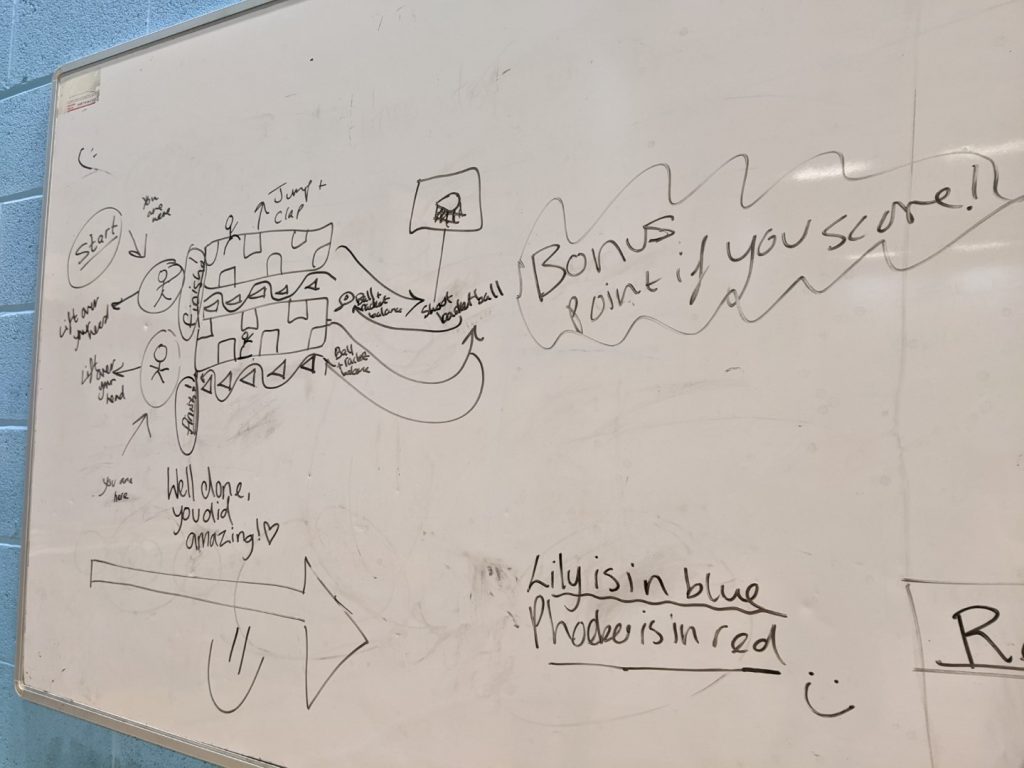 Start
You
are
here
Jump +
clap
Lift over
your head
finish!
Ball
+ racket
balance
Shoot
basketball
Lift over
your
head
Ball
+ racket
balance
finish!!
You are
here
Bonus
point if you score!!
Well done,
you did
amazing!♡
Lily is in blue
Phoebe is in red
R